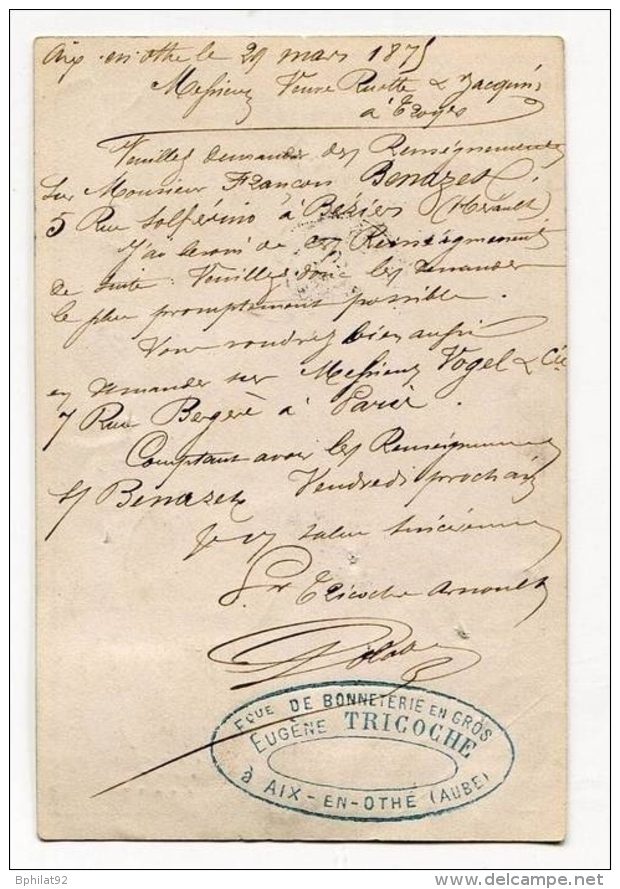 Aix-en-othe le 29 mars 1875
Messieurs Veuve Ruotte & Jacquin
à Troyes
Veuillez demander des Renseignements
sur Monsieur François Benazet
5 Rue Solférino à Béziers (Hérault)
J'ai besoin de ces Renseignements
de suite. Veuillez donc les demander
le plus promptement possible.
Vous voudrez bien aussi
en demander sur Messieurs Vogel & Cie
7 Rue Bergère à Paris.
Comptant avoir les Renseignements
s/ Benazet Vendredi prochain
Je vs salue sincèrement
Pr Tricoche Arnoult
FQUE DE BONNETERIE EN GROS
EUGÈNE TRICOCHE
à AIX-EN-OTHE (AUBE)
Bphilat92
www.delcampe.net